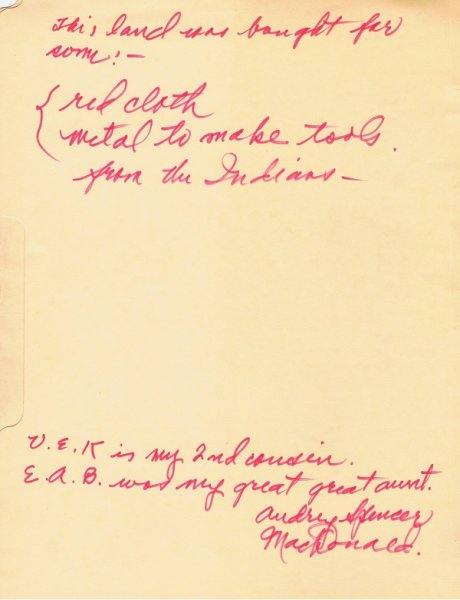 This land was bought for
some! —
{ red cloth
metal to make tools.
from the Indians —
V. E. K is my 2nd cousin.
E. A. B. was my great great aunt.
Audrey Spencer
MacDonald.